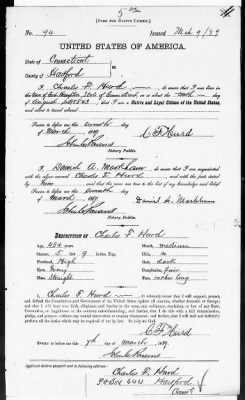 5 00
[FORM FOR NATIVE CITIZEN.]
No. 94 Issued Mch 9/89
UNITED STATES OF AMERICA.
State of Connecticut
County of Hartford
I, Charles F. Hurd, do swear that I was born in
the Town of East Hampton, State of Connecticut on or about the tenth day of
August 1843, that I am a Native and Loyal Citizen of the United States,
and about to travel abroad.
Sworn to before me this seventh day
of March 1889
C F Hurd
Notary Public.
I, Daniel A. Markham, do swear that I am acquainted
with the above named Charles F. Hurd, and with the facts stated
by him, and that the same are true to the best of my knowledge and belief.
Sworn to before me this seventh day
of March 1889
Daniel A. Markham
Notary Public.
DESCRIPTION OF Charles F. Hurd
Age, 45 Mouth, medium
Stature, 5 ft 9 Chin,
Forehead, High Hair, dark
Eyes, Gray Complexion, fair
Nose, Straight Face,
I, Charles F. Hurd, do solemnly swear that I will support, protect,
and defend the Constitution and Government of the United States against all enemies, whether domestic or foreign;
and that I will bear true faith, allegiance, and loyalty to the same, any ordinance, resolution, or law of any State,
Convention, or Legislature to the contrary notwithstanding; and further, that I do this with a full determination,
pledge, and purpose, without any mental reservation or evasion whatsoever; and further, that I will well and faithfully
perform all the duties which may be required of me by law. So help me God.
C F Hurd
Sworn to before me this 7th day of March 1889
Notary Public.
Applicant desires passport sent to following address:
Charles F. Hurd
PO Box 644 Hartford
Conn